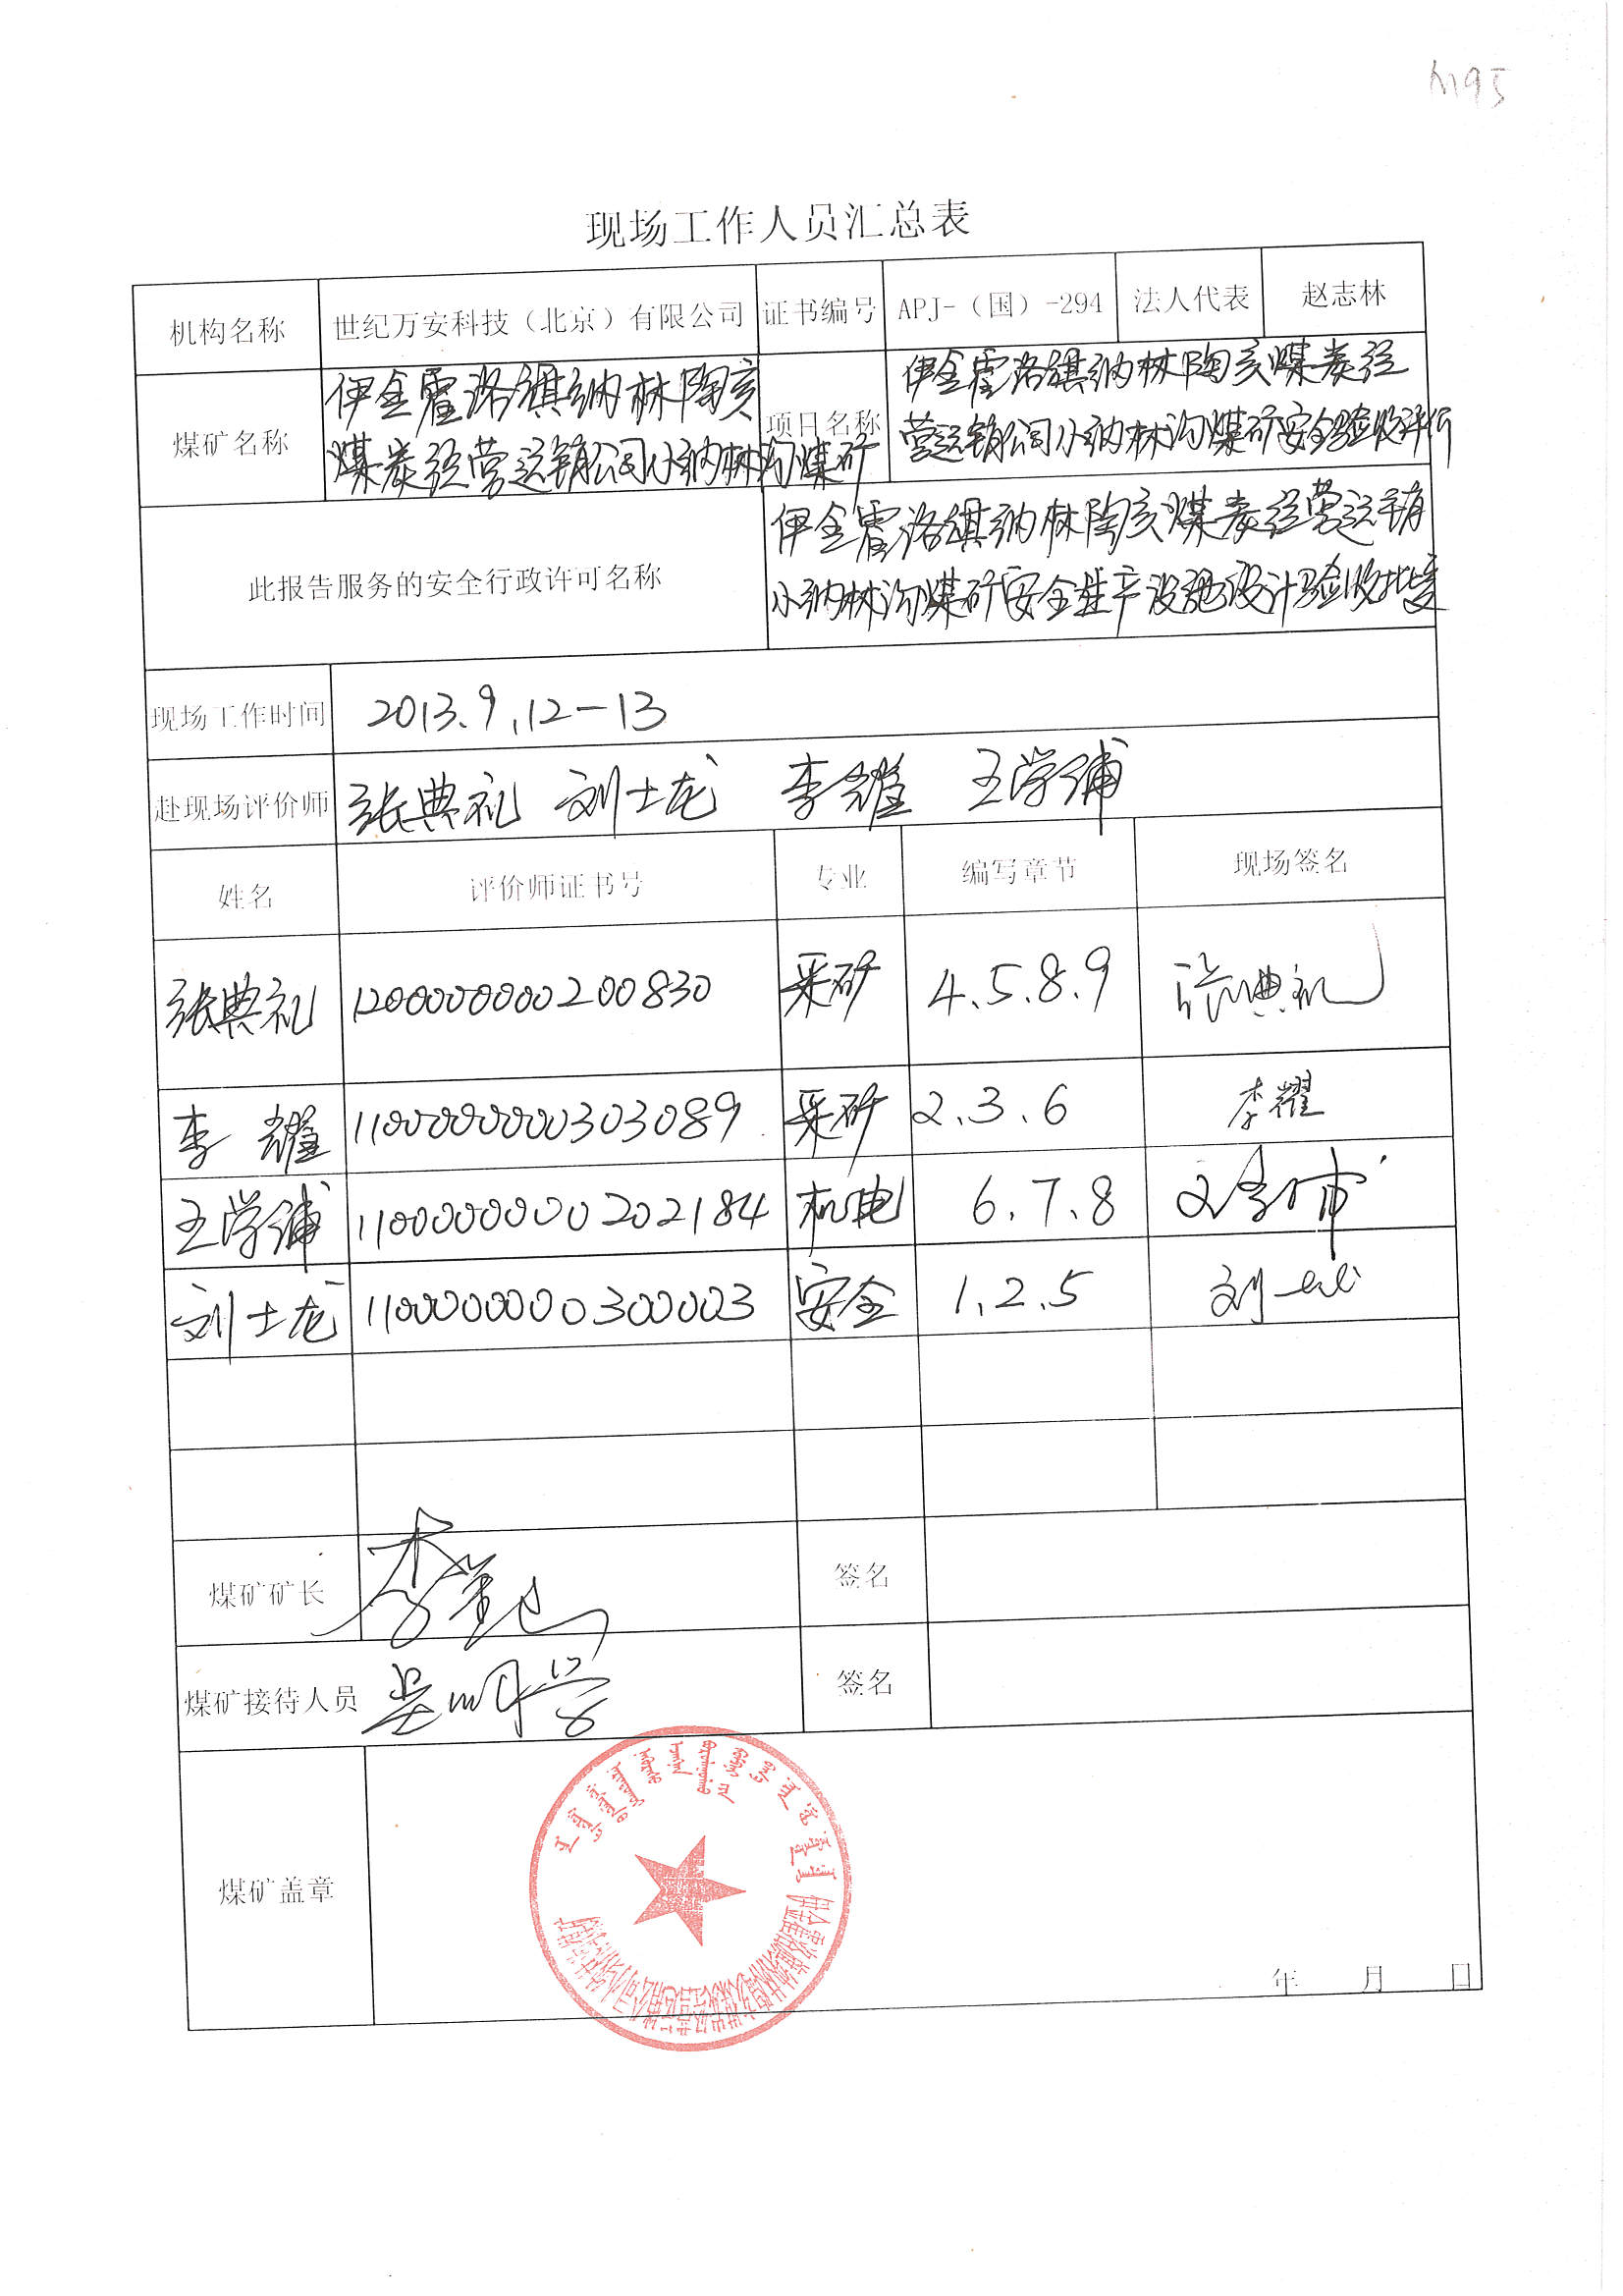 M95
现场工作人员汇总表
机构名称 世纪万安科技（北京）有限公司 证书编号 APJ-（国）-294 法人代表 赵志林
煤矿名称 伊金霍洛旗纳林陶亥
煤炭经营运销公司小纳林沟煤矿
项目名称 伊金霍洛旗纳林陶亥煤炭经
营运销公司小纳林沟煤矿安全验收评价
此报告服务的安全行政许可名称 伊金霍洛旗纳林陶亥煤炭经营运销
小纳林沟煤矿安全生产设施设计验收批复
现场工作时间 2013.9.12-13
赴现场评价师 张典礼 刘士龙 李耀 王学浦
姓名 评价师证书号 专业 编写章节 现场签名
张典礼 1200000000200830 采矿 4.5.8.9 张典礼
李耀 1100000000303089 采矿 2.3.6 李耀
王学浦 1100000000202184 机电 6.7.8
刘士龙 1100000000300003 安全 1.2.5 刘士龙
煤矿矿长 签名
煤矿接待人员 签名
煤矿盖章
伊金霍洛旗纳林陶亥煤炭经营运销公司小纳林沟煤矿
年 月 日